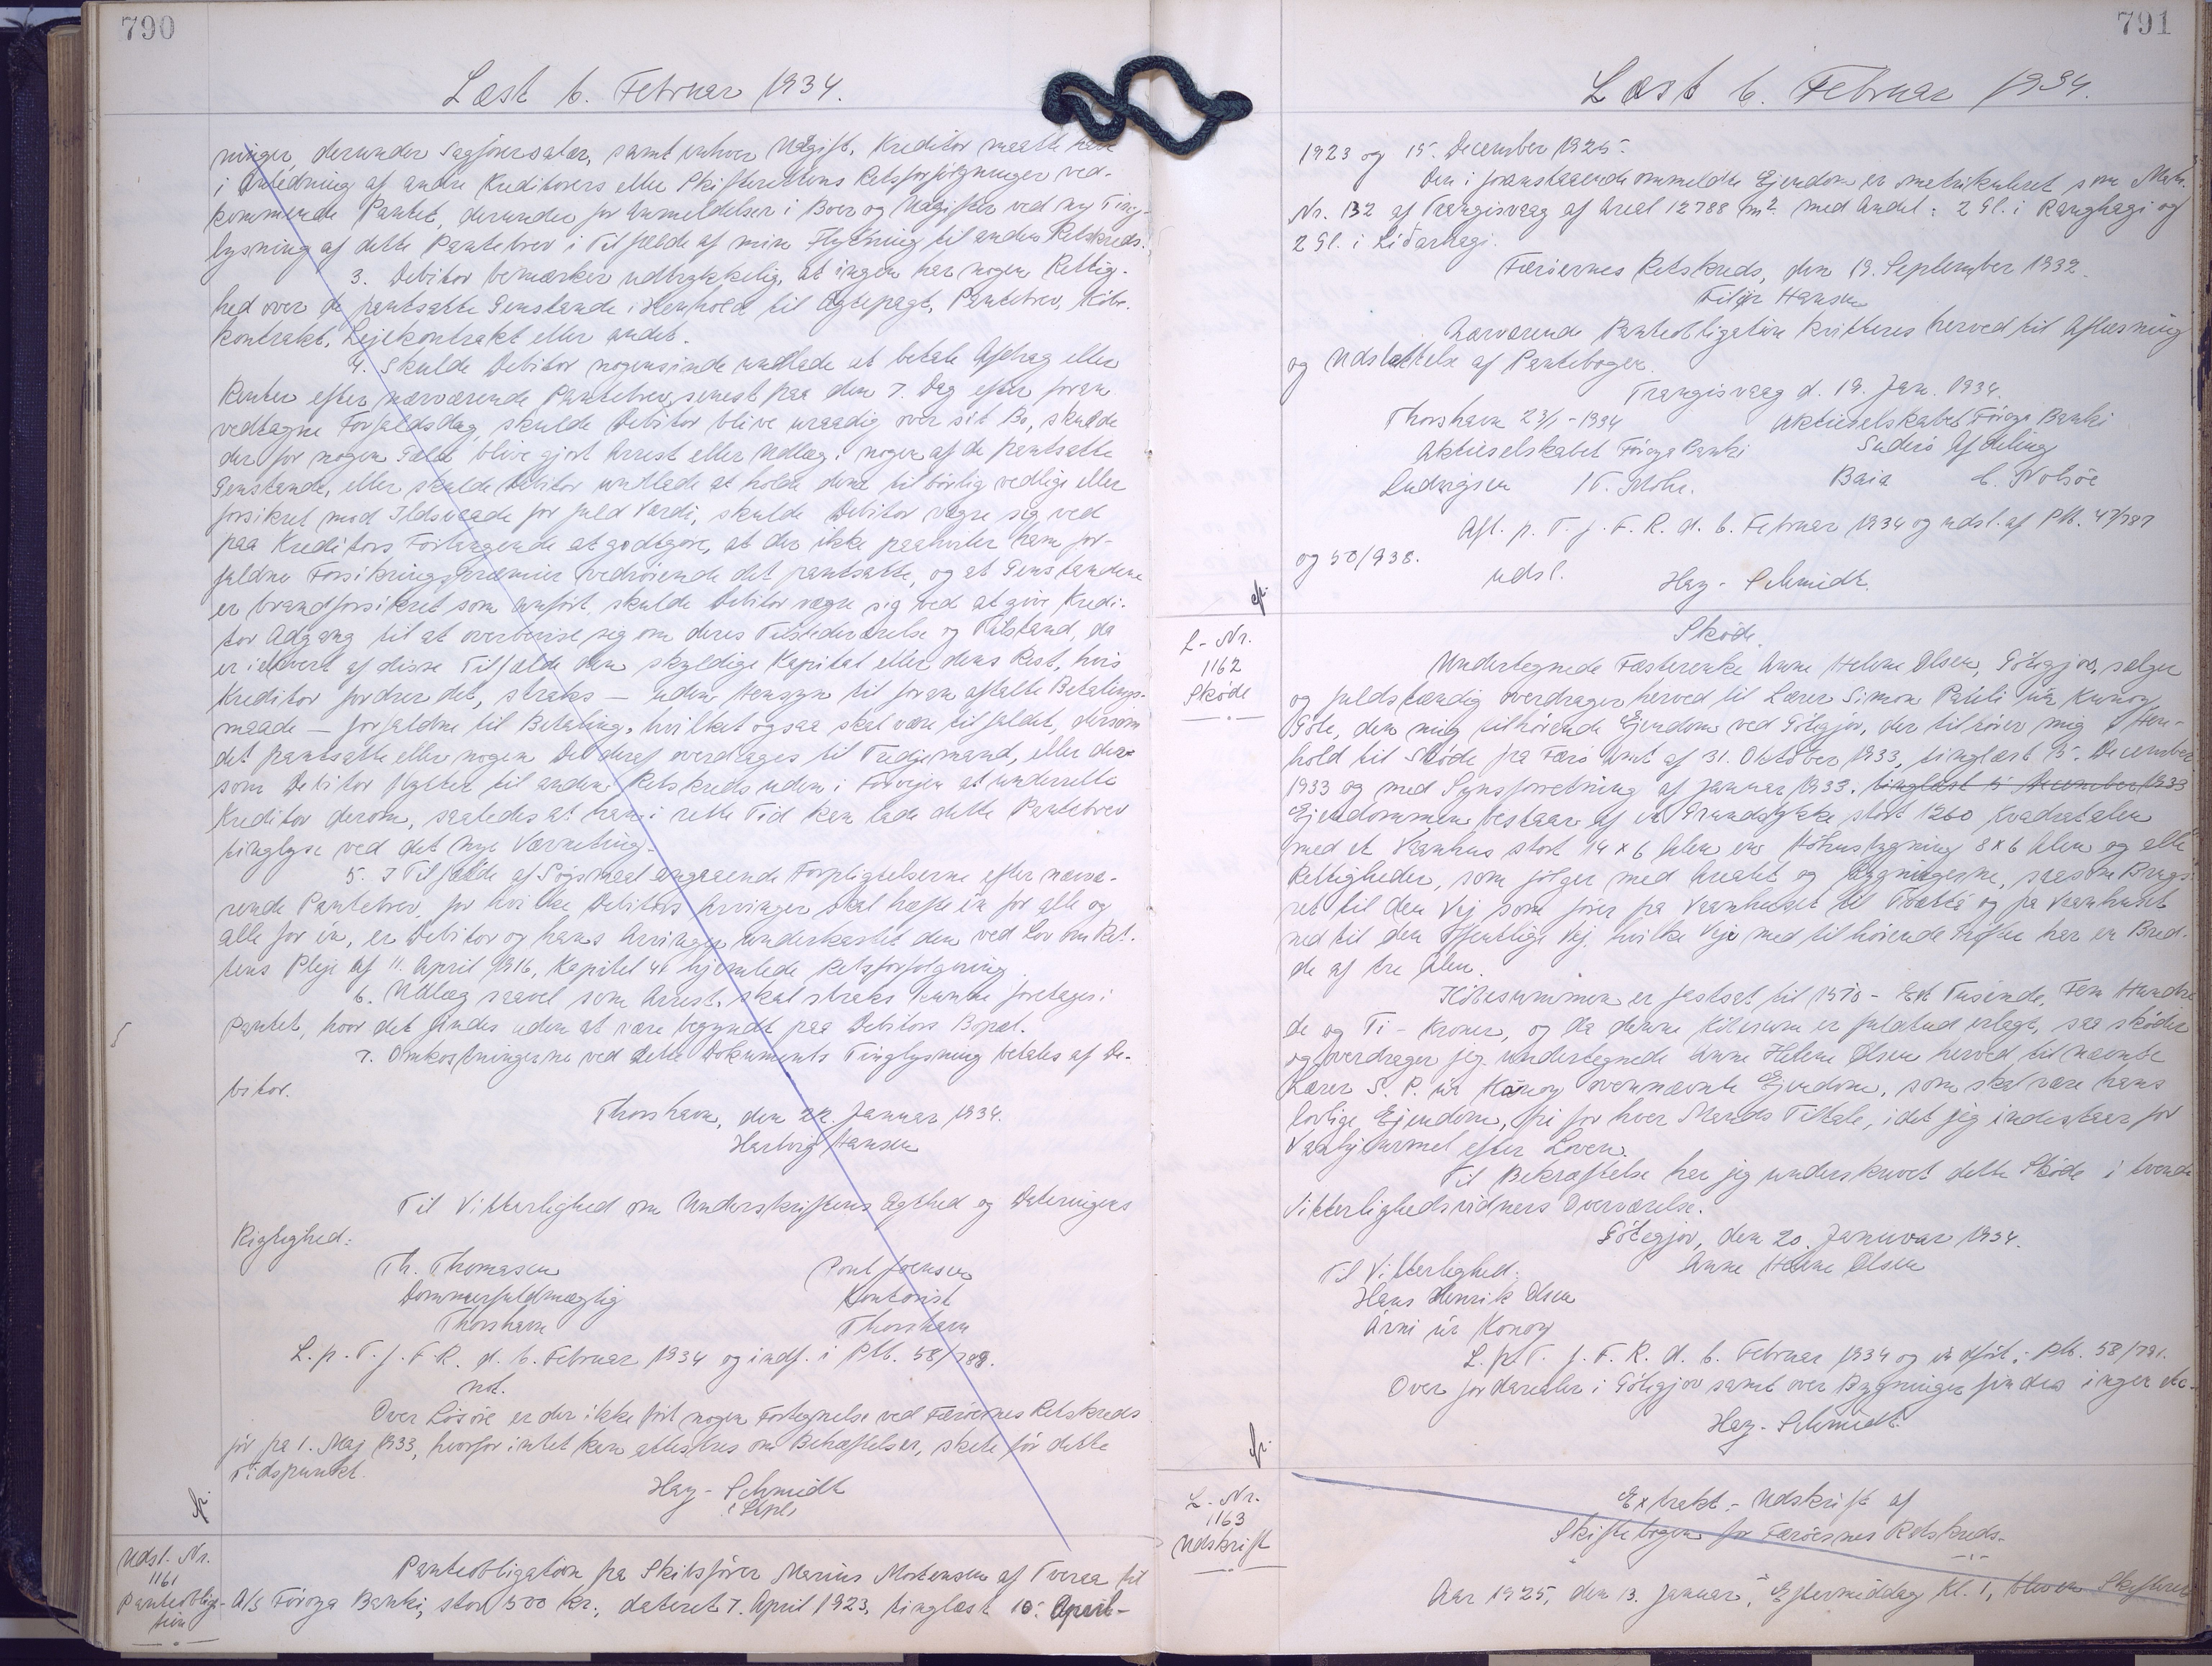 790
Læst 6. Februar 1934.
ninger, derunder Sagførersalær, samt enhver Udgift, Kreditor maatte have
i Anledning af andre Kreditorers eller Skifterettens Retsforfølgninger ved-
kommende Pantet, derunder for Anmeldelser i Boer og Udgifter ved ny Ting-
lysning af dette Pantebrev i Tilfælde af min Flytning til anden Retskreds.
3. Debitor bemærker udtrykkelig, at ingen har nogen Rettig-
hed over de pantsatte Genstande i Henhold til Ægtepagt, Pantebrev, Købe-
kontrakt, Lejekontrakt eller andet.
4. Skulde Debitor nogensinde undlade at betale Afdrag eller
Renter efter nærværende Pantebrev senest paa den 7. Dag efter foran
vedtagne Forfaldsdag, skulde Debitor blive uraadig over sit Bo, skulde
der for nogen Gæld blive gjort Arrest eller Udlæg i nogen af de pantsatte
Genstande, eller skulde Debitor undlade at holde dem tilbørlig vedlige eller
forsikret mod Ildsvaade for fuld Værdi, skulde Debitor vægre sig ved
paa Kreditors Forlangende at godtgøre, at der ikke paahviler ham for-
faldne Forsikringspræmier vedrørende det pantsatte, og at Genstandene
er brandforsikret som anført, skulde Debitor vægre sig ved at give Kredi-
tor Adgang til at overbevise sig om deres Tilstedeværelse og Tilstand, da
er i ethvert af disse Tilfælde den skyldige Kapital eller dens Rest, hvis
Kreditor fordrer det, straks — uden Hensyn til foran aftalte Betalings-
maade — forfalden til Betaling, hvilket ogsaa skal være tilfældet, dersom
det pantsatte eller nogen Del deraf overdrages til Tredjemand, eller der-
som Debitor flytter til anden Retskreds uden i Forvejen at underrette
Kreditor derom, saaledes at han i rette Tid kan lade dette Pantebrev
tinglyse ved det nye Værneting.
5. I Tilfælde af Søgsmaal angaaende Forpligtelserne efter nærvæ-
rende Pantebrev, for hvilke Debitors Arvinger skal hæfte én for alle og
alle for én, er Debitor og hans Arvinger underkastet den ved Lov om Ret-
tens Pleje af 11. April 1916, Kapitel 41 hjemlede Retsforfølgning.
6. Udlæg saavel som Arrest skal straks kunne foretages i
Pantet, hvor det findes uden at være begyndt paa Debitors Bopæl.
7. Omkostningerne ved dette Dokuments Tinglysning betales af De-
bitor.
Thorshavn, den 22. Januar 1934.
Hartvig Hansen
Til Vitterlighed om Underskriftens Ægthed og Dateringens
Rigtighed:
Th. Thomasen Poul Joensen
Dommerfuldmægtig Kontorist
Thorshavn Thorshavn
L. p. T. f. F. R. d. 6. Februar 1934 og indf. i Ptb. 58/789.
not.
Over Løsøre er der ikke ført nogen Fortegnelse ved Færøernes Retskreds
før fra 1. Maj 1933, hvorfor intet kan attesteres om Behæftelser, skete før dette
Tidspunkt.
Hay-Schmidt
Udsl. Nr.
1161
Panteobliga-
tion
Panteobligation fra Skibsfører Marius Mortensen af Tveraa til
A/S Føroya Banki, stor 500 Kr., dateret 7. April 1923, tinglæst 10. April
791
Læst 6. Februar 1934.
1923 og 15. December 1925.
Den i foranstaaende ommeldte Ejendom er matrikuleret som Matr.
Nr. 132 af Trangisvaag af Areal 12788 m². med Andel: 2 Gl. i Ranghagi og
2 Gl. i Liðarhagi.
Færøernes Retskreds, den 19. September 1932.
Hansen
Nærværende Panteobligation kvitteres herved til Aflæsning
og Udslettelse af Pantebogen.
Trangisvaag d. 19. Jan. 1934.
Thorshavn 23/1-1934 Aktieselskabet Føroya Banki
Aktieselskabet Føroya Banki Suderø Afdeling
Ludvigsen Mohr. Baia C. Nolsøe
Afl. p. T. f. F. R. d. 6. Februar 1934 og udsl. af Ptb. 47/787
og 50/938.
udsl. Hay-Schmidt.
L-Nr.
1162
Skøde
Skøde.
Undertegnede Fæsterenke Anne Helene Olsen, Gøtegjov, sælger
og fuldstændig overdrager herved til Lærer Simon Pauli úr Kunoy,
Gøte, den mig tilhørende Ejendom ved Gøtegjov, der tilhører mig i Hen-
hold til Skøde fra Færø Amt af 31. Oktober 1933, tinglæst 5. December
1933 og med Synsforretning af Januar 1933. tinglæst 5 December 1933
Ejendommen bestaar af et Grundstykke stort 1260 Kvadratalen
med et Vaanhus stort 14 x 6 Alen en Høhusbygning 8 x 6 Alen og alle
Rettigheder, som følger med Arealet og Bygningerne, saasom Brugs-
ret til den Vej som fører fra Vaanhuset til og fra Vaanhuset
ned til den offentlige Vej, hvilke Veje med tilhørende Grøfter har en Bred-
de af tre Alen.
Købesummen er fastsat til 1510 - Et Tusinde, Fem Hundre-
de og Ti - Kroner, og da denne Købesum er fuldtud erlagt, saa skøder
og overdrager jeg undertegnede Anne Helene Olsen herved til nævnte
Lærer S. P. úr Kunoy ovennævnte Ejendom, som skal være hans
lovlige Ejendom, fri for hver Mands Tiltale, idet jeg indestaar for
Vanhjemmel efter Loven.
Til Bekræftelse har jeg underskrevet dette Skøde i tvende
Vitterlighedsvidners Overværelse.
Gøtegjov, den 20. Januar 1934.
Til Vitterlighed: Anne Helene Olsen
Hans Henrik Olsen
Árni úr Konoy
L. p. T. f. F. R. d. 6. Februar 1934 og indført i Ptb. 58/791.
Over Jordarealer i Gøtegjov samt over Bygninger findes ingen
Hay-Schmidt.
L.-Nr.
1163
Udskrift
Extrakt-Udskrift af
Skiftebogen for Færøernes Retskreds.
Aar 1925, den 13. Januar, Eftermiddag Kl. 1, blev Skifteret